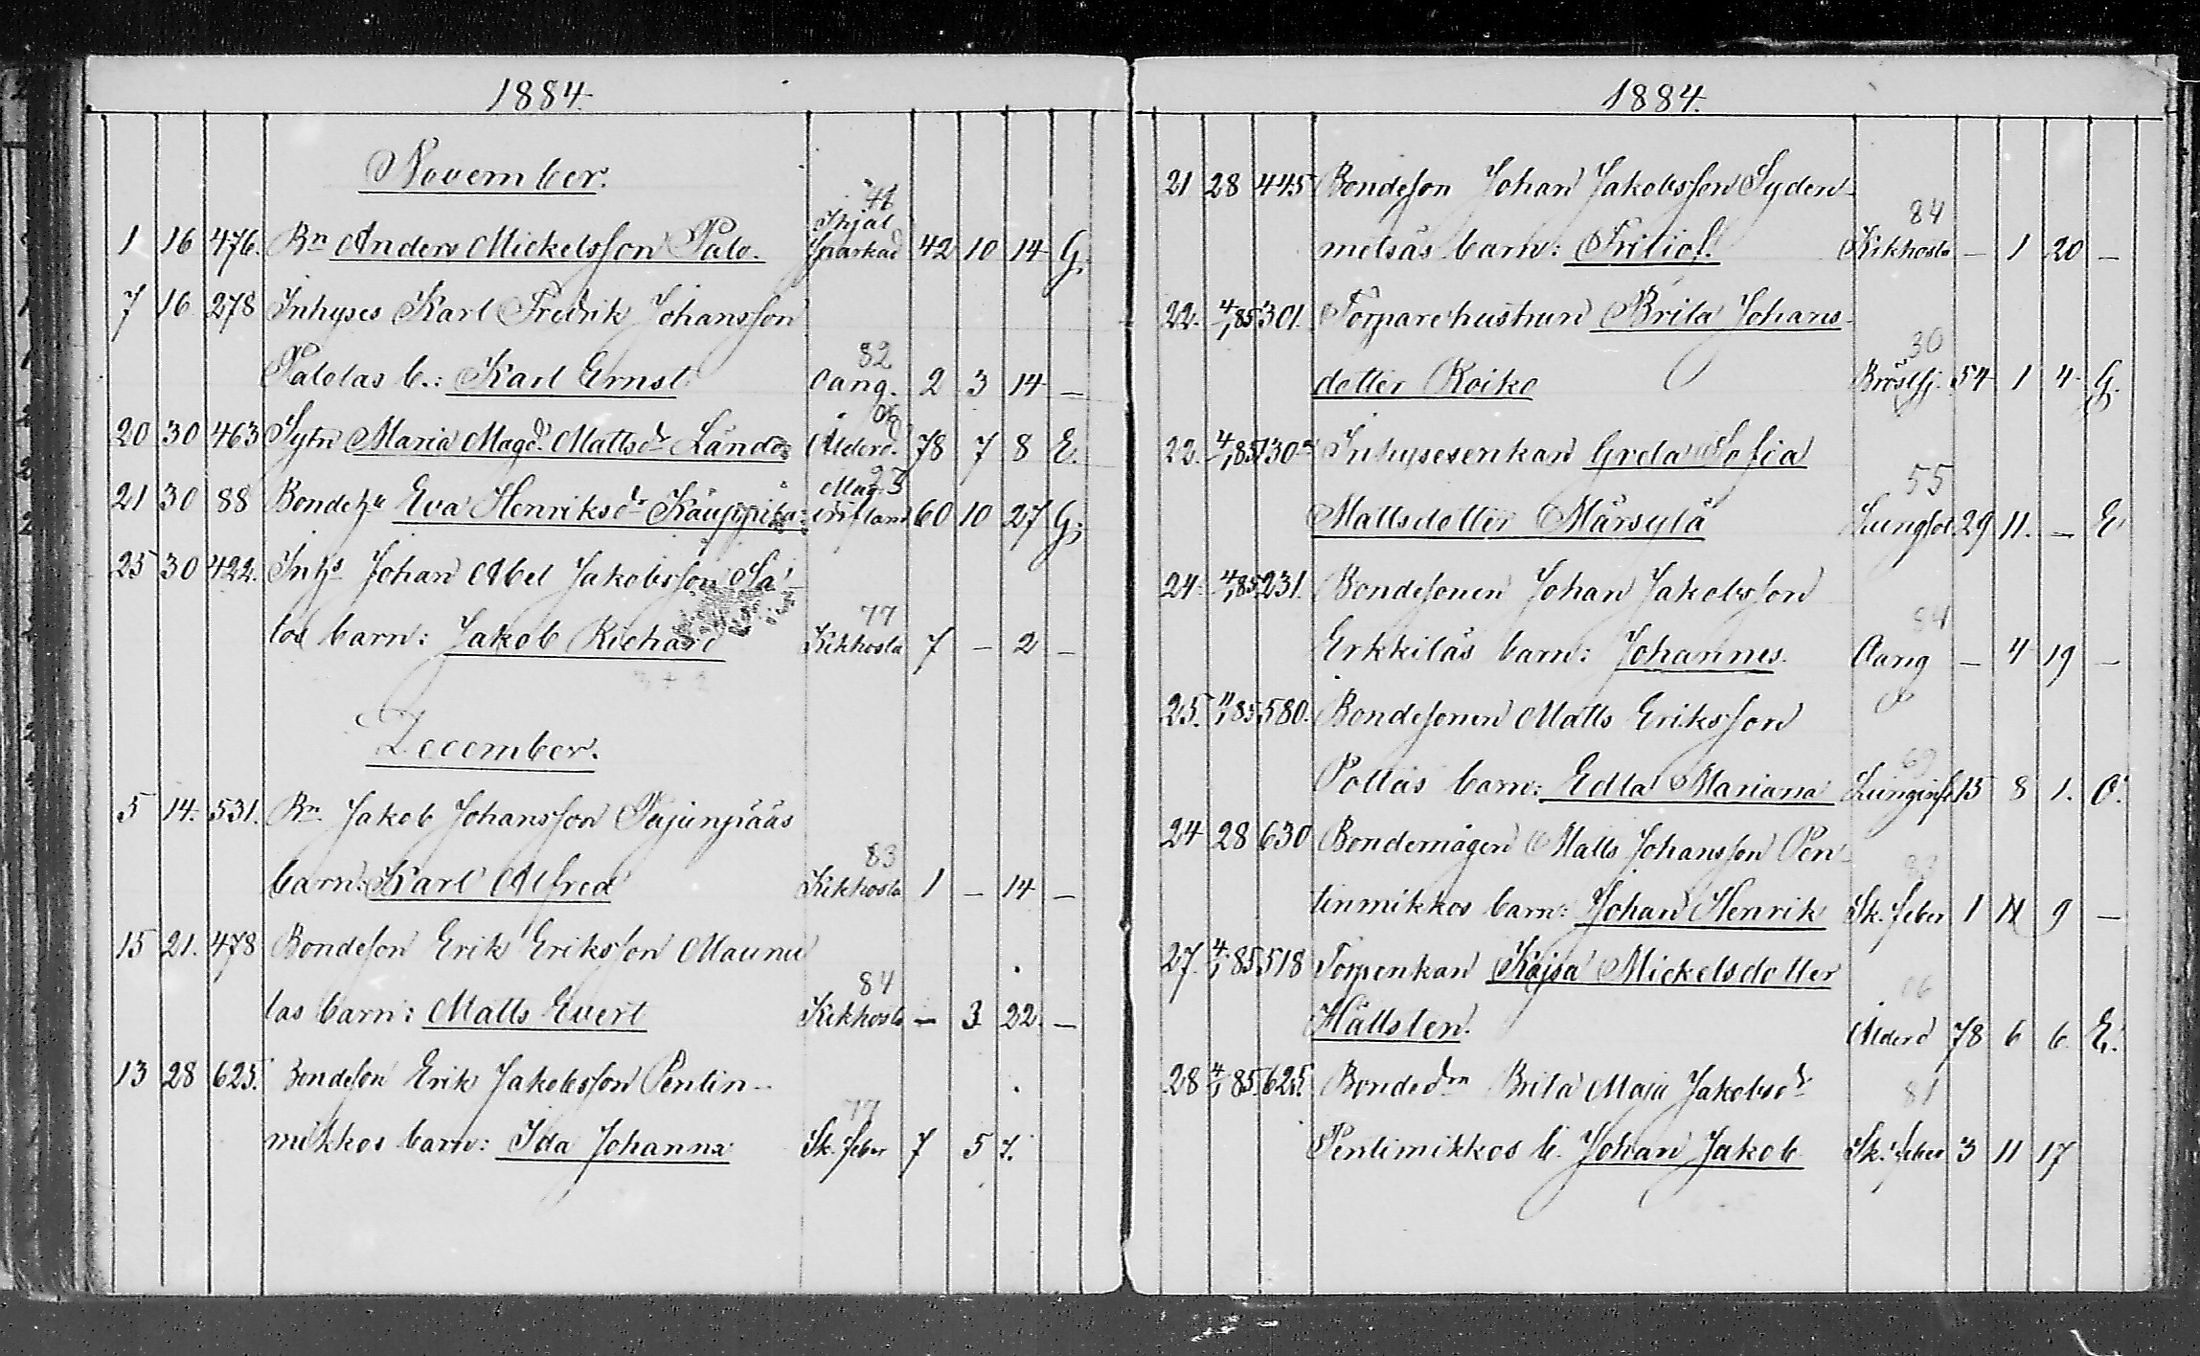 1884.
November.
41
Ihjäl
1 16 476. Bn Anders Mickelsson Palo. sparkad 42 10 14 G.
7 16 278 Inhyses Karl Fredrik Johansson
82
Palolas b.: Karl Ernst Oang. 2 3 14 —
06
20 30 463 Sytn Maria Magd. Mattsdr Ålderd. 78 7 8 E.
23
Mag
21 30 88 Bondeh. Eva Henriksdr inflam 60 10 27 G.
25 30 422. Inhs Johan Abel Jakobsson Sa-
77
los barn: Jakob Richard Kikhosta 7 — 2 —
December.
5 14. 531. Bn. Jakob Johansson Pajunpääs
83
barn: Karl Alfred Kikhosta 1 — 14 —
15 21. 478 Bondeson Erik Eriksson Maunu
84
las barn: Matts Evert Kikhosta — 3 22. —
13 28 625. Bondeson Erik Jakobsson Pentin-
77
mikkos barn: Ida Johanna Sk. feber 7 5 7.
1884.
21 28 445 Bondeson Johan Jakobsson Syden-
84
metsäs barn: Fritiof. Kikhosta — 1 20 —
22. 4/1 85 301. Torparehustrun Brita Johans-
30
dotter Koiko Bröstfj. 54 1 4 G.
22. 4/1 85 130 Inhysesenkan Greta Sofia
55
Mattsdotter Märsylä Lungsot. 29 11. — E
24. 4/1 85 231. Bondesonen Johan Jakobsson
84
Erkkiläs barn: Johannes. Oang — 4 19 —
25. 11/1 85 580. Bondesonen Matts Eriksson
69
Pottas barn: Edla Mariana Lunginfl. 15 8 1. O.
24 28 630 Bondemågen Matts Johansson Pen-
83
tinmikkos barn: Johan Henrik Sk. feber 1 11 9 —
27. 4/1 85 518 Torpenkan Kajsa Mickelsdotter
06
Hällsten. Ålderd 78 6 6. E.
28 4/1 85 625. Bondedrn Brita Maja Jakobsdr
81
Pentimikkos b. Johan Jakob Sk. feber 3 11 17